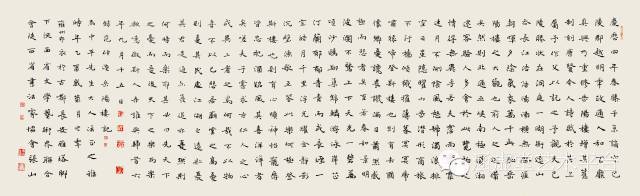 慶曆四年春滕子京謫守巴
陵郡越明年政通人和百
廢具興乃重修岳陽樓增其舊
制刻唐賢今人詩賦於其上
屬予作文以記之予觀夫巴
陵勝狀在洞庭一湖銜遠山
吞長江浩浩湯湯橫無際涯
朝暉夕陰氣象萬千此則岳
陽樓之大觀也前人之述備
矣然則北通巫峽南極瀟湘
遷客騷人多會於此覽物之
情得無異乎若夫霪雨霏霏
連月不開陰風怒號濁浪排
空日星隱曜山岳潛形商旅
不行檣傾楫摧薄暮冥冥虎
嘯猿啼登斯樓也則有去國
懷鄉憂讒畏譏滿目蕭然感
極而悲者矣至若春和景明
波瀾不驚上下天光一碧萬
頃沙鷗翔集錦鱗游泳岸芷
汀蘭郁郁青青而或長煙一
空皓月千里浮光躍金靜影
沉璧漁歌互答此樂何極登
斯樓也則有心曠神怡寵辱
偕忘把酒臨風其喜洋洋者
矣嗟夫予嘗求古仁人之心
或異二者之為何哉不以物
喜不以己悲居廟堂之高則
憂其民處江湖之遠則憂
其君是進亦憂退亦憂然則
何時而樂耶其必曰先天下
之憂而憂後天下之樂而樂
歟噫微斯人吾誰與歸時六
年九月十五日
范仲淹岳陽樓記